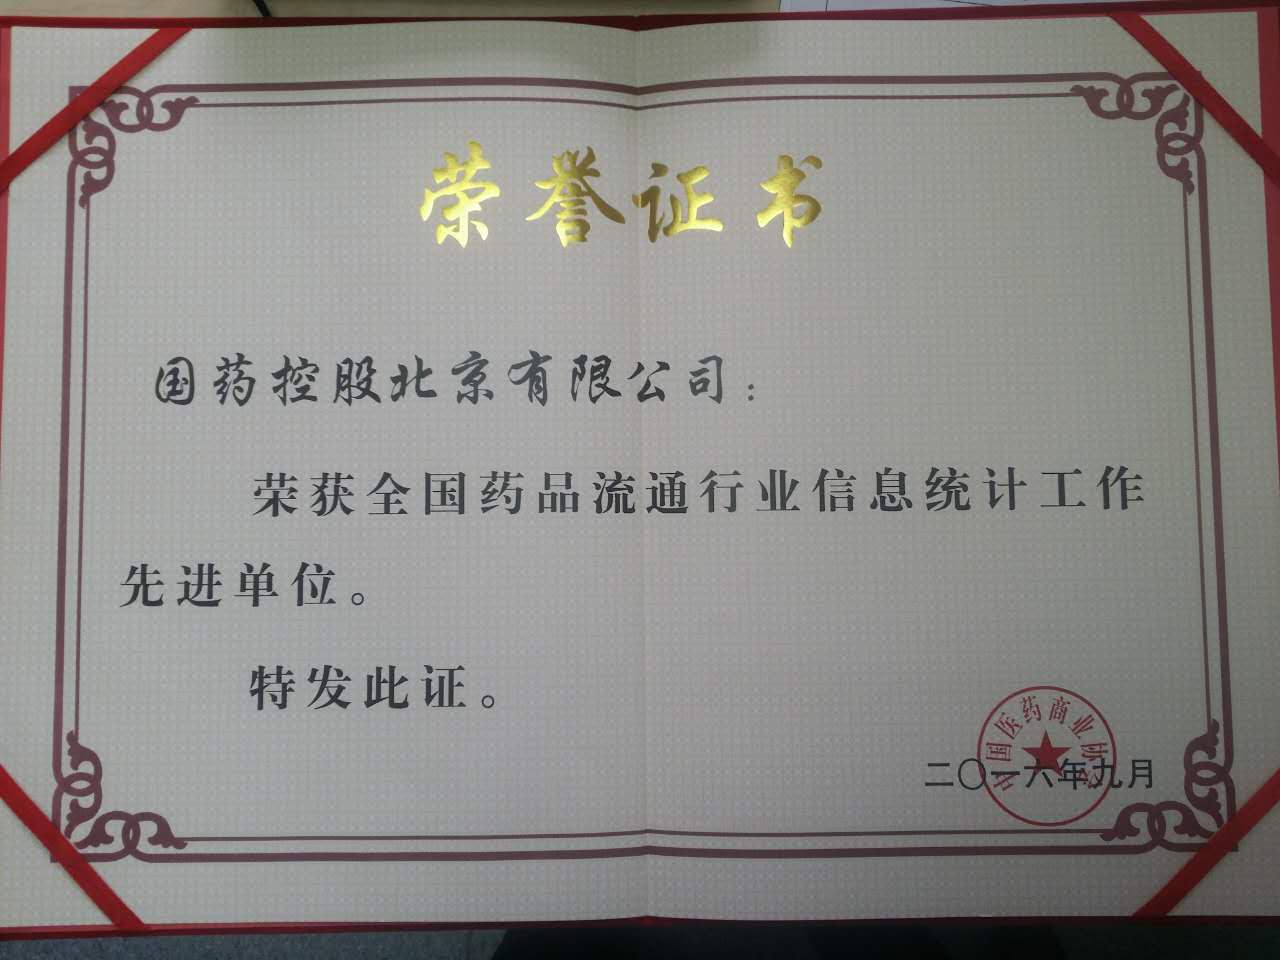 荣誉证书
国药控股北京有限公司：
荣获全国药品流通行业信息统计工作
先进单位。
特发此证。
中国医药商业协会
二〇一六年九月